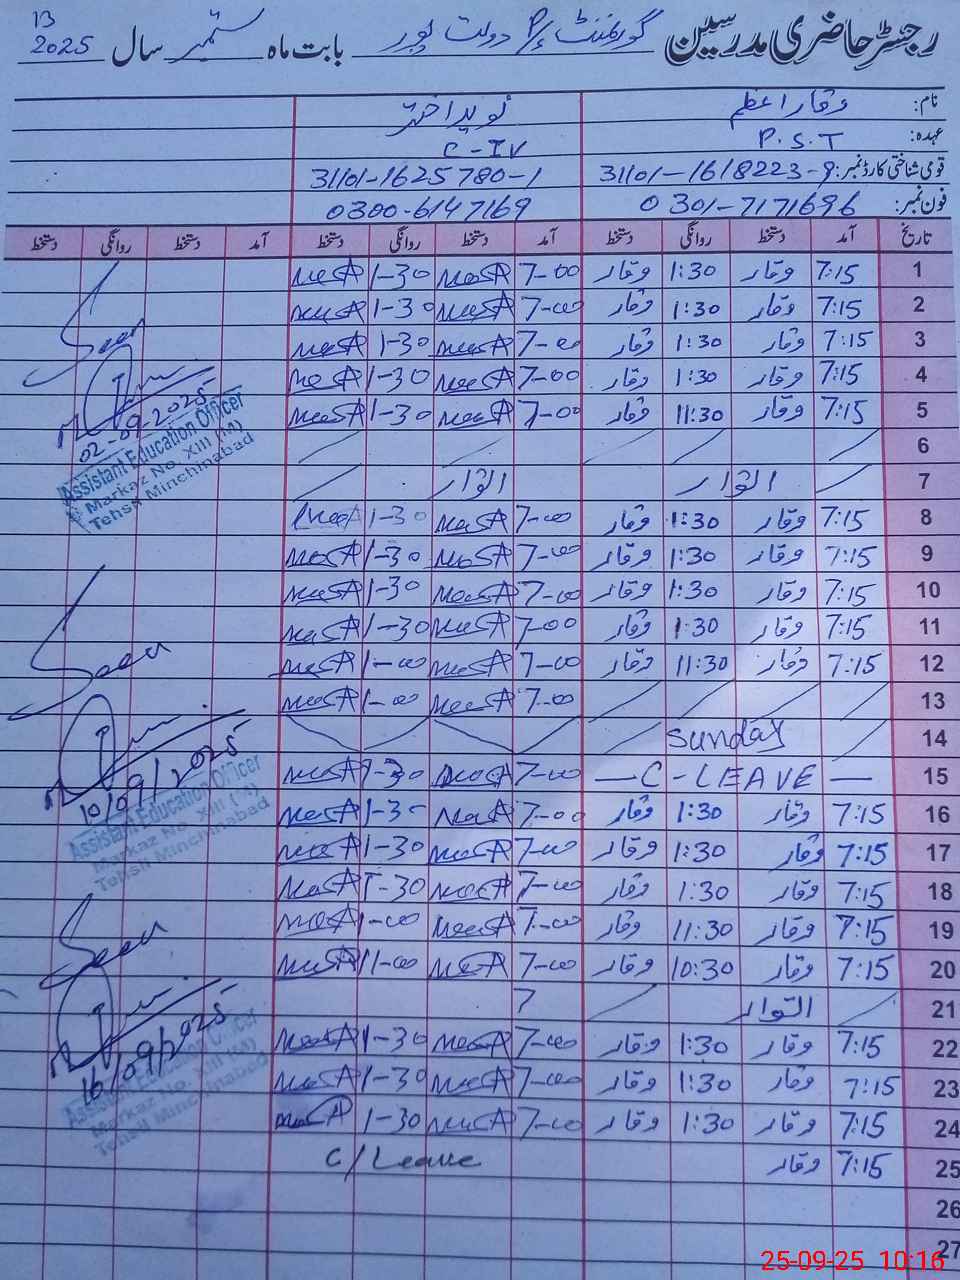 رجسٹر حاضری مدرسین گورنمنٹ P/S دولت پور بابت ماہ ستمبر سال 2025
13
نام: وقار اعظم نوید اختر
عہدہ: P.S.T C-IV
قومی شناختی کارڈ نمبر: 31101-1618223-9 31101-1625780-1
فون نمبر: 0301-7171696 0300-6147169
تاریخ آمد دستخط روانگی دستخط آمد دستخط روانگی دستخط آمد دستخط روانگی دستخط
1 7:15 وقار 1:30 وقار 7-00 1-30
2 7:15 وقار 1:30 وقار 7-00 1-30
3 7:15 وقار 1:30 وقار 7-00 1-30
4 7:15 وقار 1:30 وقار 7-00 1-30
5 7:15 وقار 11:30 وقار 7-00 1-30
6
7 اتوار اتوار
8 7:15 وقار 1:30 وقار 7-00 1-30
9 7:15 وقار 1:30 وقار 7-00 1-30
10 7:15 وقار 1:30 وقار 7-00 1-30
11 7:15 وقار 1:30 وقار 7-00 1-30
12 7:15 وقار 11:30 وقار 7-00 1-00
13 7-00 1-00
14 Sunday
15 — C-LEAVE — 7-00 1-30
16 7:15 وقار 1:30 وقار 7-00 1-30
17 7:15 وقار 1:30 وقار 7-00 1-30
18 7:15 وقار 1:30 وقار 7-00 1-30
19 7:15 وقار 11:30 وقار 7-00 1-00
20 7:15 وقار 10:30 وقار 7-00 11-00
21 اتوار 7
22 7:15 وقار 1:30 وقار 7-00 1-30
23 7:15 وقار 1:30 وقار 7-00 1-30
24 7:15 وقار 1:30 وقار 7-00 1-30
25 7:15 وقار C/Leave
26
27
Seen
02-09-2025
Assistant Education Officer
Markaz No. XIII (M)
Tehsil Minchinabad
Seen
10/09/2025
Assistant Education Officer
Markaz No. XIII (M)
Tehsil Minchinabad
Seen
16/09/2025
Assistant Education Officer
Markaz No. XIII (M)
Tehsil Minchinabad
25-09-25 10:16